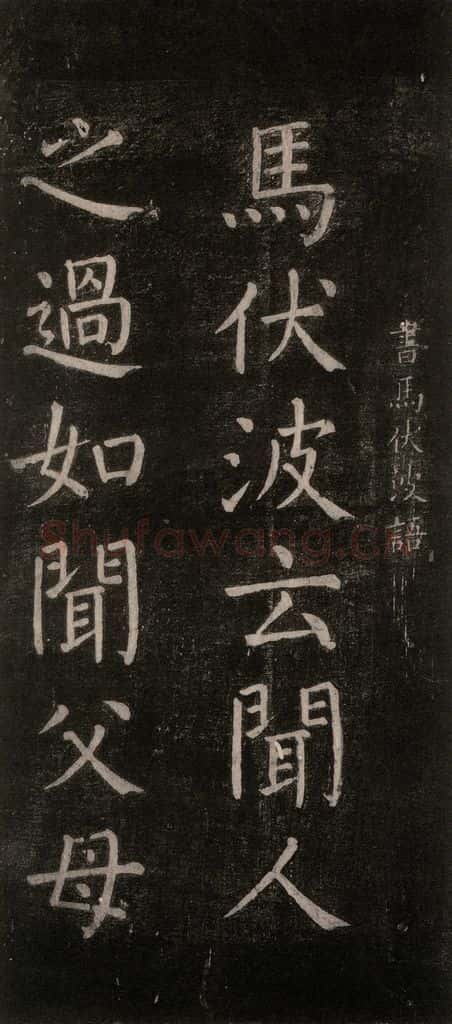 書馬伏波語
馬伏波云聞人
之過如聞父母
Shufawang.cn